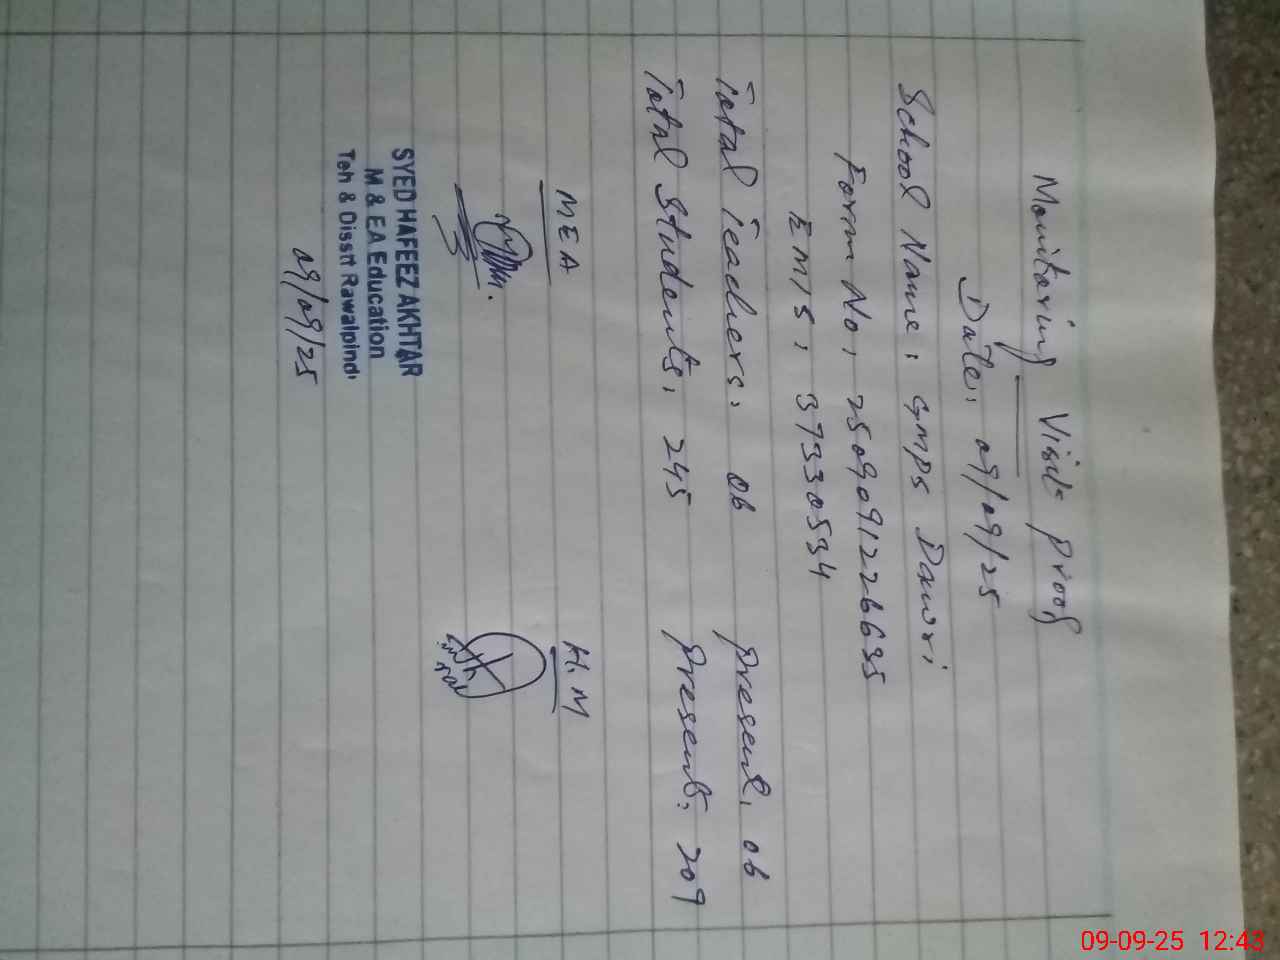 Monitoring Visit Proof
Date: 09/09/25
School Name: GMPS Dawri
Form No: 2509091226635
EMIS: 37330534
Total Teachers: 06 Present: 06
Total Students: 245 Present: 209
MEA H.M
SYED HAFEEZ AKHTAR
M & EA Education
Teh & Disstt Rawalpindi
09/09/25
09-09-25 12:43